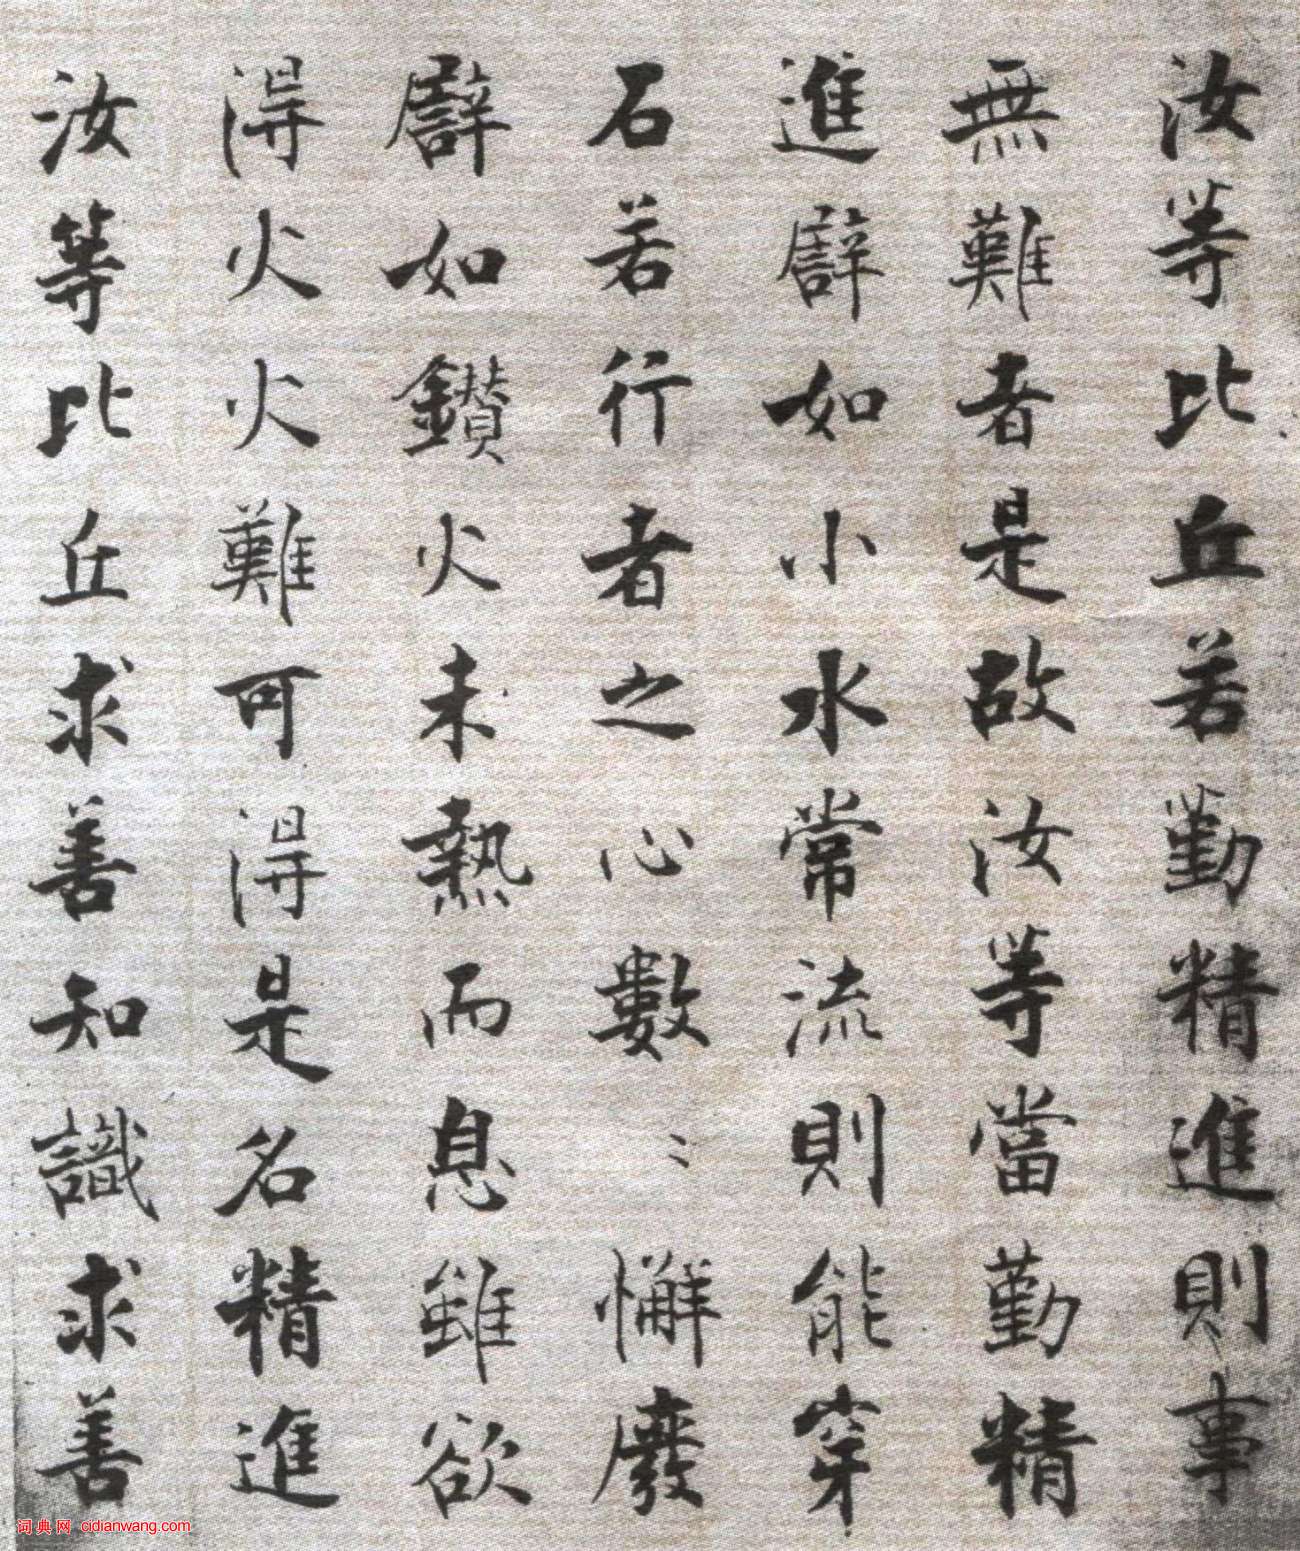 汝等比丘若勤精進則事
無難者是故汝等當勤精
進譬如小水常流則能穿
石若行者之心數〻懈廢
譬如鑚火未熱而息雖欲
得火火難可得是名精進
汝等比丘求善知識求善
词典网 cidianwang.com